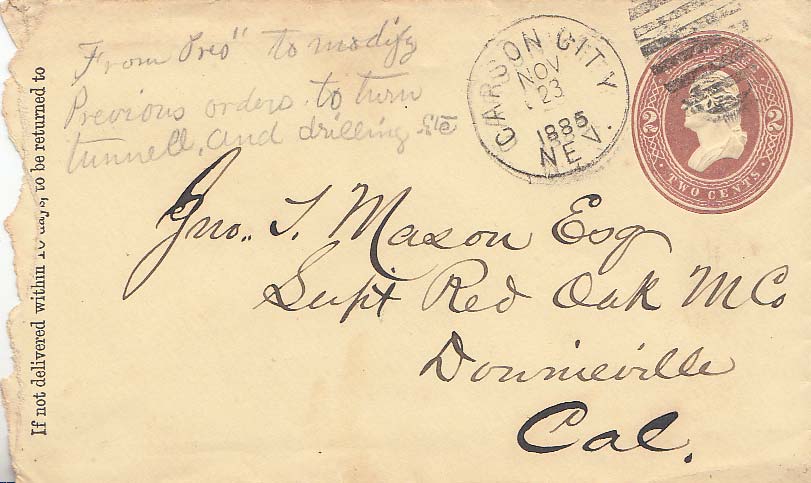 From Pres" to modify
Previous orders to turn
tunnell, and drilling Etc
CARSON CITY
NOV
23
1885
NEV.
2 2
TWO CENTS
Jno. T. Mason Esq
Supt Red Oak M Co
Downieville
Cal.
If not delivered within 10 days, to be returned to